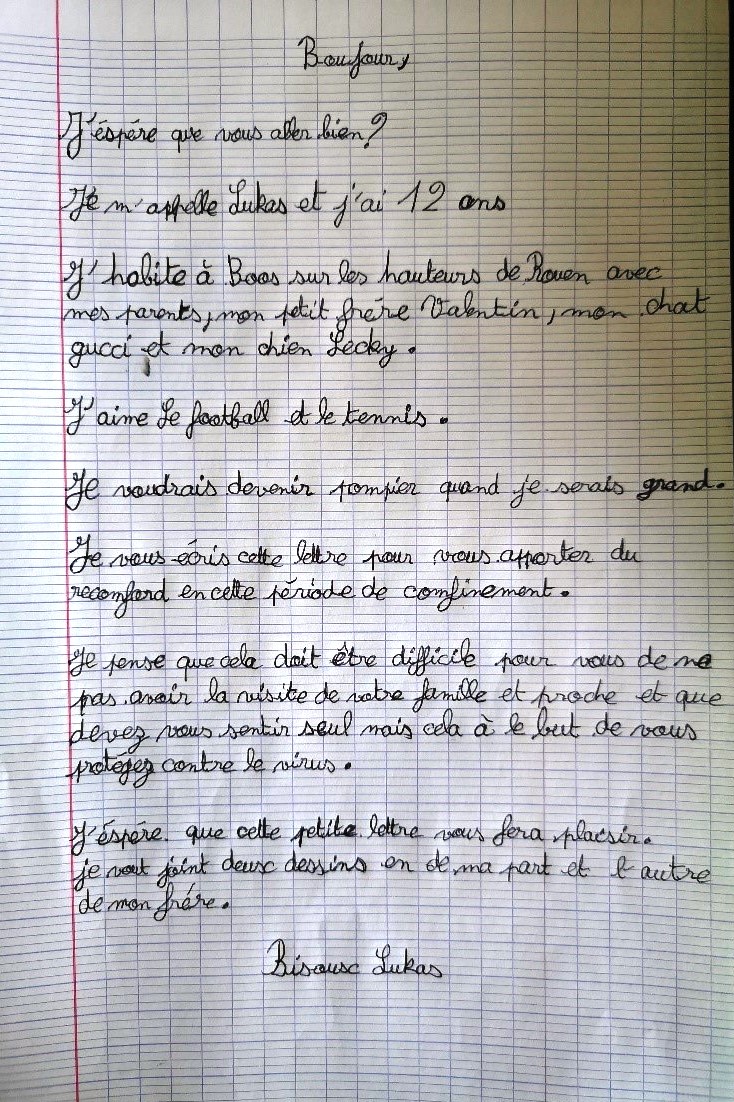 Boujour,
J'éspére que vous aller bien?
Je m'appelle Lukas et j'ai 12 ans
J'habite à Boos sur les hauteurs de Rouen avec
mes parents, mon petit frére Valentin, mon chat
gucci et mon chien Lecky.
J'aime le football et le tennis.
Je voudrais devenir pompier quand je serais grand.
Je vous écris cette lettre pour vous apporter du
reconford en cette période de confinement.
Je pense que cela doit être difficile pour vous de ne
pas avoir la visite de votre famille et proche et que
devez vous sentir seul mais cela à le but de vous
protégez contre le virus.
J'éspére que cette petite lettre vous fera placsir.
je vout joint deux dessins en de ma part et l'autre
de mon frére.
Bisoux Lukas